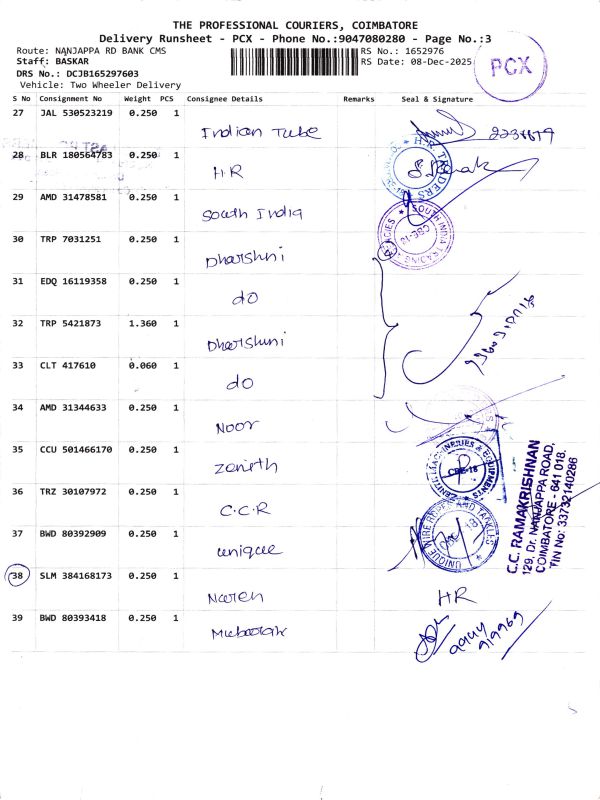 THE PROFESSIONAL COURIERS, COIMBATORE
Delivery Runsheet - PCX - Phone No.:9047080280 - Page No.:3
Route: NANJAPPA RD BANK CMS
RS No.: 1652976
Staff: BASKAR
RS Date: 08-Dec-2025
PCX
DRS No.: DCJB165297603
Vehicle: Two Wheeler Delivery
S No Consignment No Weight PCS Consignee Details Remarks Seal & Signature
27 JAL 530523219 0.250 1 Indian Tube
28 BLR 180564783 0.250 1 HR
H.R. TRADERS
29 AMD 31478581 0.250 1 South India
SOUTH INDIA TRADING
CBE-18
30 TRP 7031251 0.250 1 Dharshni
31 EDQ 16119358 0.250 1 do
32 TRP 5421873 1.360 1 Dharshni
33 CLT 417610 0.060 1 do
34 AMD 31344633 0.250 1 Noor
35 CCU 501466170 0.250 1 Zenith
ZENITH MACHINERIES & EQUIPMENTS
CBE-18
36 TRZ 30107972 0.250 1 C.C.R
C.C. RAMAKRISHNAN
129, Dr. NANJAPPA ROAD,
COIMBATORE - 641 018.
TIN No: 33732140286
37 BWD 80392909 0.250 1 unique
UNIQUE WIRE ROPES AND TACKLES
38 SLM 384168173 0.250 1 Naren HR
39 BWD 80393418 0.250 1 Mubarak